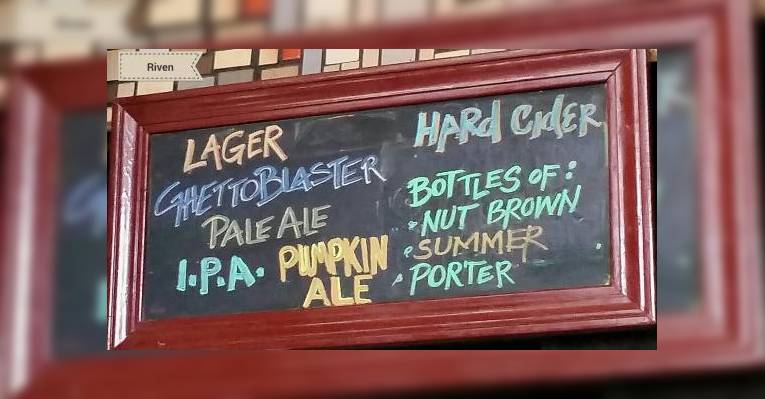 Riven
LAGER
GHETTOBLASTER
PALE ALE
I.P.A.
PUMPKIN
ALE
HARd CIdER
BOTTLES OF:
·NUT BROWN
·SUMMER
·PORTER